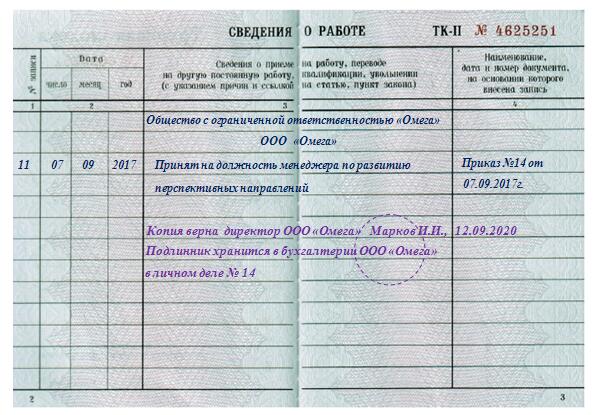 СВЕДЕНИЯ О РАБОТЕ ТК-II № 4625251
№ записи
Дата
число месяц год
Сведения о приеме на работу, переводе
на другую постоянную работу, квалификации, увольнении
(с указанием причин и ссылкой на статью, пункт закона)
Наименование,
дата и номер документа,
на основании которого
внесена запись
1 2 3 4
Общество с ограниченной ответственностью «Омега»
ООО «Омега»
11 07 09 2017 Принят на должность менеджера по развитию Приказ №14 от
перспективных направлений 07.09.2017г.
Копия верна директор ООО «Омега» Марков И.И., 12.09.2020
Подлинник хранится в бухгалтерии ООО «Омега»
в личном деле № 14
2 3